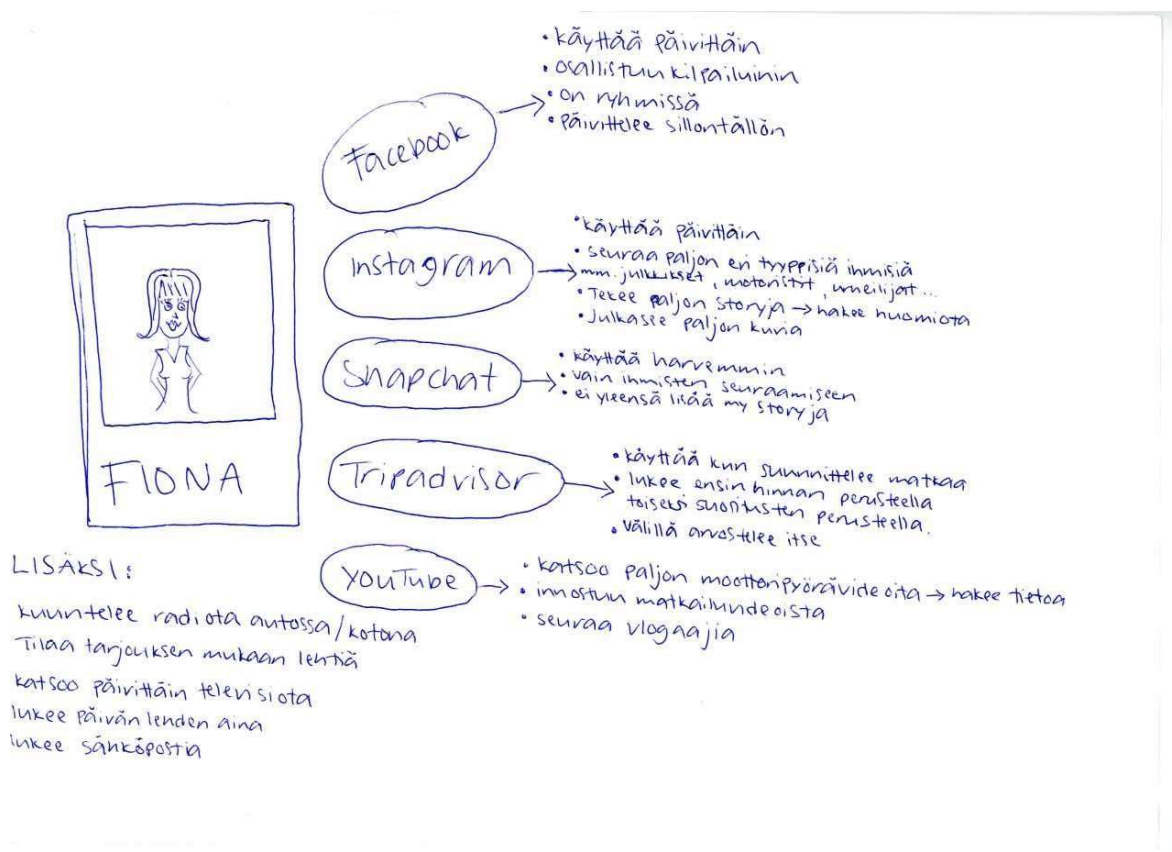 Facebook
• käyttää päivittäin
• osallistuu kilpailuihin
• on ryhmissä
• päivittelee sillontällön
Instagram
• käyttää päivittäin
• seuraa paljon eri tyyppisiä ihmisiä
mm. julkkikset, motoristit, urheilijat...
• Tekee paljon storyja → hakee huomiota
• Julkasee paljon kuvia
Snapchat
• käyttää harvemmin
• vain ihmisten seuraamiseen
• ei yleensä lisää my storyja
Tripadvisor
• käyttää kun suunnittelee matkaa
• lukee ensin hinnan perusteella
toiseksi suositusten perusteella.
• välillä arvostelee itse
YouTube
• katsoo paljon moottoripyörävideoita → hakee tietoa
• innostuu matkailuvideoista
• seuraa vlogaajia
FIONA
LISÄKSI:
kuuntelee radiota autossa/kotona
Tilaa tarjouksen mukaan lehtiä
katsoo päivittäin televisiota
lukee päivän lehden aina
lukee sähköpostia